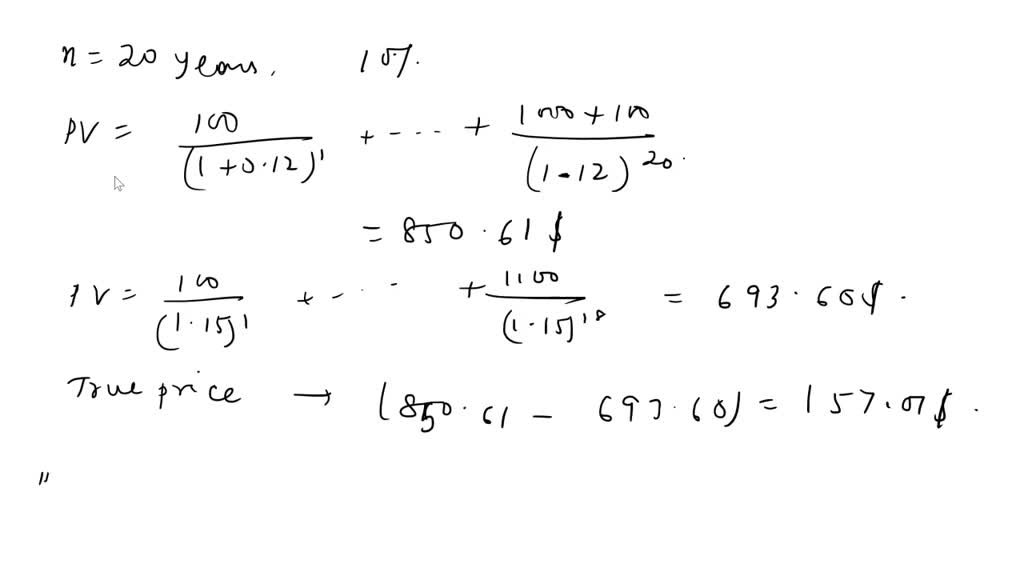 n = 20 years, 10%.
PV = 100/(1+0.12)^1 + ---- + (1000+100)/(1.12)^20.
= 850.61$
PV = 100/(1.15)^1 + - - - + 1100/(1.15)^18 = 693.60$.
True price → (850.61 - 693.60) = 157.01$.
"